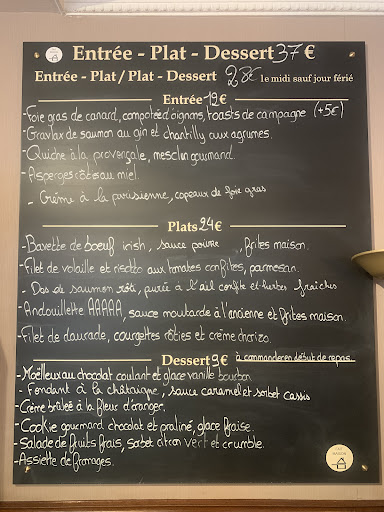 Entrée - Plat - Dessert 37 €
Entrée - Plat / Plat - Dessert 28€ le midi sauf jour férié
Entrée 12 €
- Foie gras de canard, compotée d'oignons, toasts de campagne (+5€)
- Gravlax de saumon au gin et chantilly aux agrumes.
- Quiche à la provençale, mesclun gourmand.
- Asperges rôties au miel.
- Crème à la parisienne, copeaux de foie gras
Plats 24 €
- Bavette de boeuf irish, sauce poivre , frites maison.
- Filet de volaille et risotto aux tomates confites, parmesan.
- Dos de saumon rôti, purée à l'ail confit et herbes fraîches
- Andouillette AAAAA, sauce moutarde à l'ancienne et frites maison.
- Filet de daurade, courgettes rôties et crème chorizo.
Dessert 9 € à commander en début de repas
- Moëlleux au chocolat coulant et glace vanille bourbon
- Fondant à la châtaigne, sauce caramel et sorbet cassis
- Crème brûlée à la fleur d'oranger.
- Cookie gourmand chocolat et praliné, glace fraise.
- Salade de fruits frais, sorbet citron vert et crumble.
- Assiette de fromages.